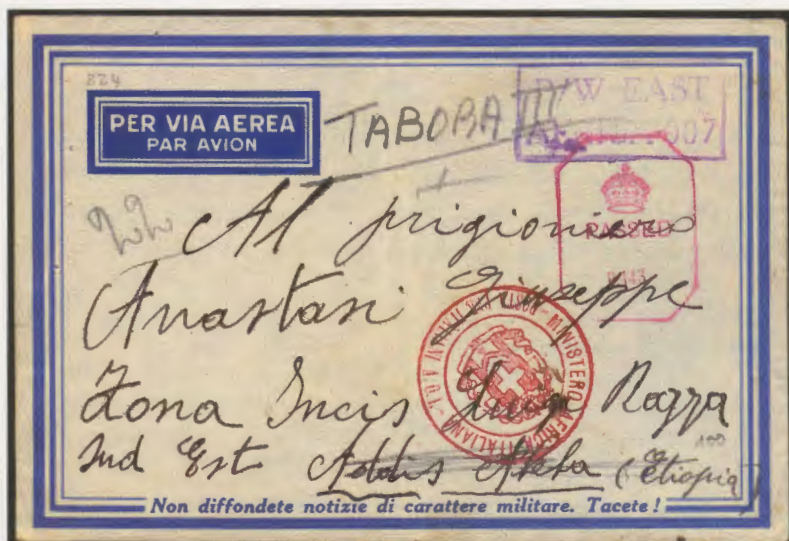 824
PER VIA AEREA
PAR AVION
TABORA III
P/W EAST
PASSED
22
Al prigioniero
Anastasi Giuseppe
Zona Incis Luigi Razza
Sud Est Addis Abeba (Etiopia)
100
MINISTERO AFRICA ITALIANA
Non diffondete notizie di carattere militare. Tacete!